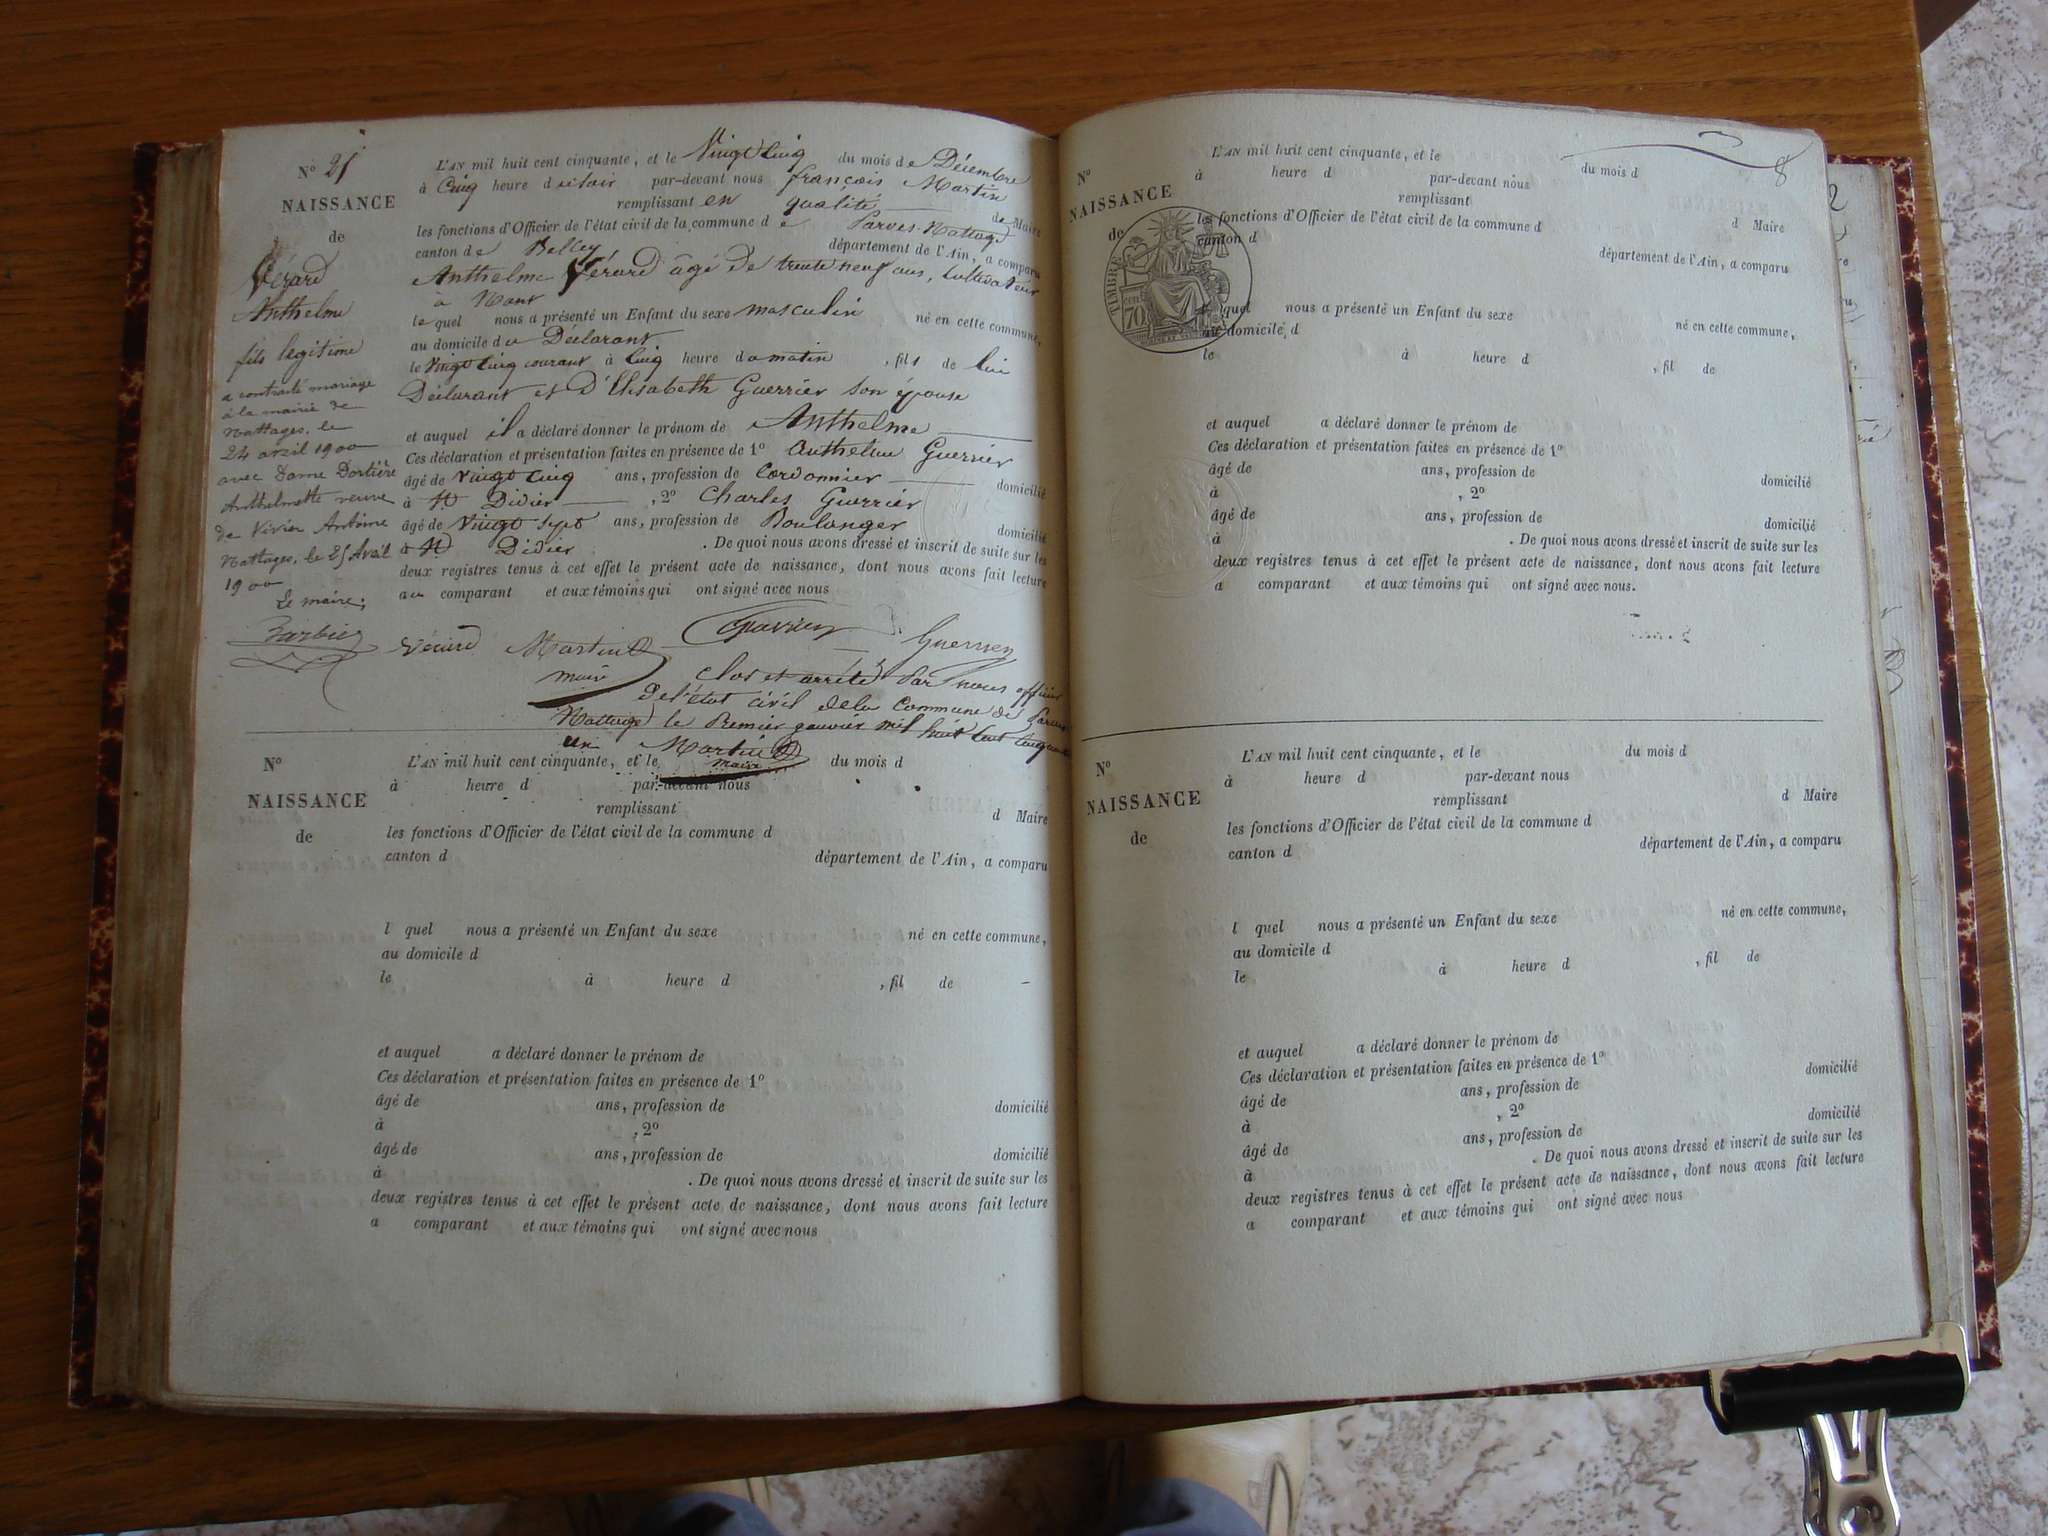 N° 21
NAISSANCE
de
Vérard
Anthelme
fils légitime
a contracté mariage
à la mairie de
Nattages, le
24 avril 1900
avec Dame Dortière
Anthelmette veuve
de Vivier Antoine
Nattages, le 25 Avril
1900
Le maire,
Barbier
L'AN mil huit cent cinquante, et le Vingt Cinq du mois de Décembre
à Cinq heure du soir par-devant nous françois Martin
remplissant en qualité de Maire
les fonctions d'Officier de l'état civil de la commune de Parves-Nattage
canton de Belley département de l'Ain, a comparu
Anthelme Vérard âgé de trente neuf ans, Cultivateur
à Nant
lequel nous a présenté un Enfant du sexe masculin né en cette commune,
au domicile du Déclarant
le Vingt Cinq courant à Cinq heure du matin, fils de lui
Déclarant et d'Elisabeth Guerrier son épouse
et auquel il a déclaré donner le prénom de Anthelme
Ces déclaration et présentation faites en présence de 1° Anthelme Guerrier
âgé de Vingt Cinq ans, profession de Cordonnier domicilié
à St Didier, 2° Charles Guerrier
âgé de Vingt Sept ans, profession de Boulanger domicilié
à St Didier. De quoi nous avons dressé et inscrit de suite sur les
deux registres tenus à cet effet le présent acte de naissance, dont nous avons fait lecture
au comparant et aux témoins qui ont signé avec nous
Vérard Martin Guerrier
maire
Clos et arrêté Par nous officier
de l'état civil de la Commune de Parves
Nattage le Premier janvier mil huit Cent Cinquante
un Martin
maire
N°
NAISSANCE
de
L'AN mil huit cent cinquante, et le du mois d
à heure d par-devant nous
remplissant
d Maire
les fonctions d'Officier de l'état civil de la commune d
canton d département de l'Ain, a comparu
l quel nous a présenté un Enfant du sexe né en cette commune,
au domicile d
le à heure d , fil de
et auquel a déclaré donner le prénom de
Ces déclaration et présentation faites en présence de 1°
âgé de ans, profession de domicilié
à , 2°
âgé de ans, profession de domicilié
à . De quoi nous avons dressé et inscrit de suite sur les
deux registres tenus à cet effet le présent acte de naissance, dont nous avons fait lecture
a comparant et aux témoins qui ont signé avec nous
8
N°
NAISSANCE
de
TIMBRE
70
L'AN mil huit cent cinquante, et le du mois d
à heure d par-devant nous
remplissant
d Maire
les fonctions d'Officier de l'état civil de la commune d
canton d département de l'Ain, a comparu
l quel nous a présenté un Enfant du sexe né en cette commune,
au domicile d
le à heure d , fil de
et auquel a déclaré donner le prénom de
Ces déclaration et présentation faites en présence de 1°
âgé de ans, profession de domicilié
à , 2°
âgé de ans, profession de domicilié
à . De quoi nous avons dressé et inscrit de suite sur les
deux registres tenus à cet effet le présent acte de naissance, dont nous avons fait lecture
a comparant et aux témoins qui ont signé avec nous.
N°
NAISSANCE
de
L'AN mil huit cent cinquante, et le du mois d
à heure d par-devant nous
remplissant d Maire
les fonctions d'Officier de l'état civil de la commune d
canton d département de l'Ain, a comparu
l quel nous a présenté un Enfant du sexe né en cette commune,
au domicile d
le à heure d , fil de
et auquel a déclaré donner le prénom de
Ces déclaration et présentation faites en présence de 1°
âgé de ans, profession de domicilié
à , 2°
âgé de ans, profession de domicilié
à . De quoi nous avons dressé et inscrit de suite sur les
deux registres tenus à cet effet le présent acte de naissance, dont nous avons fait lecture
a comparant et aux témoins qui ont signé avec nous